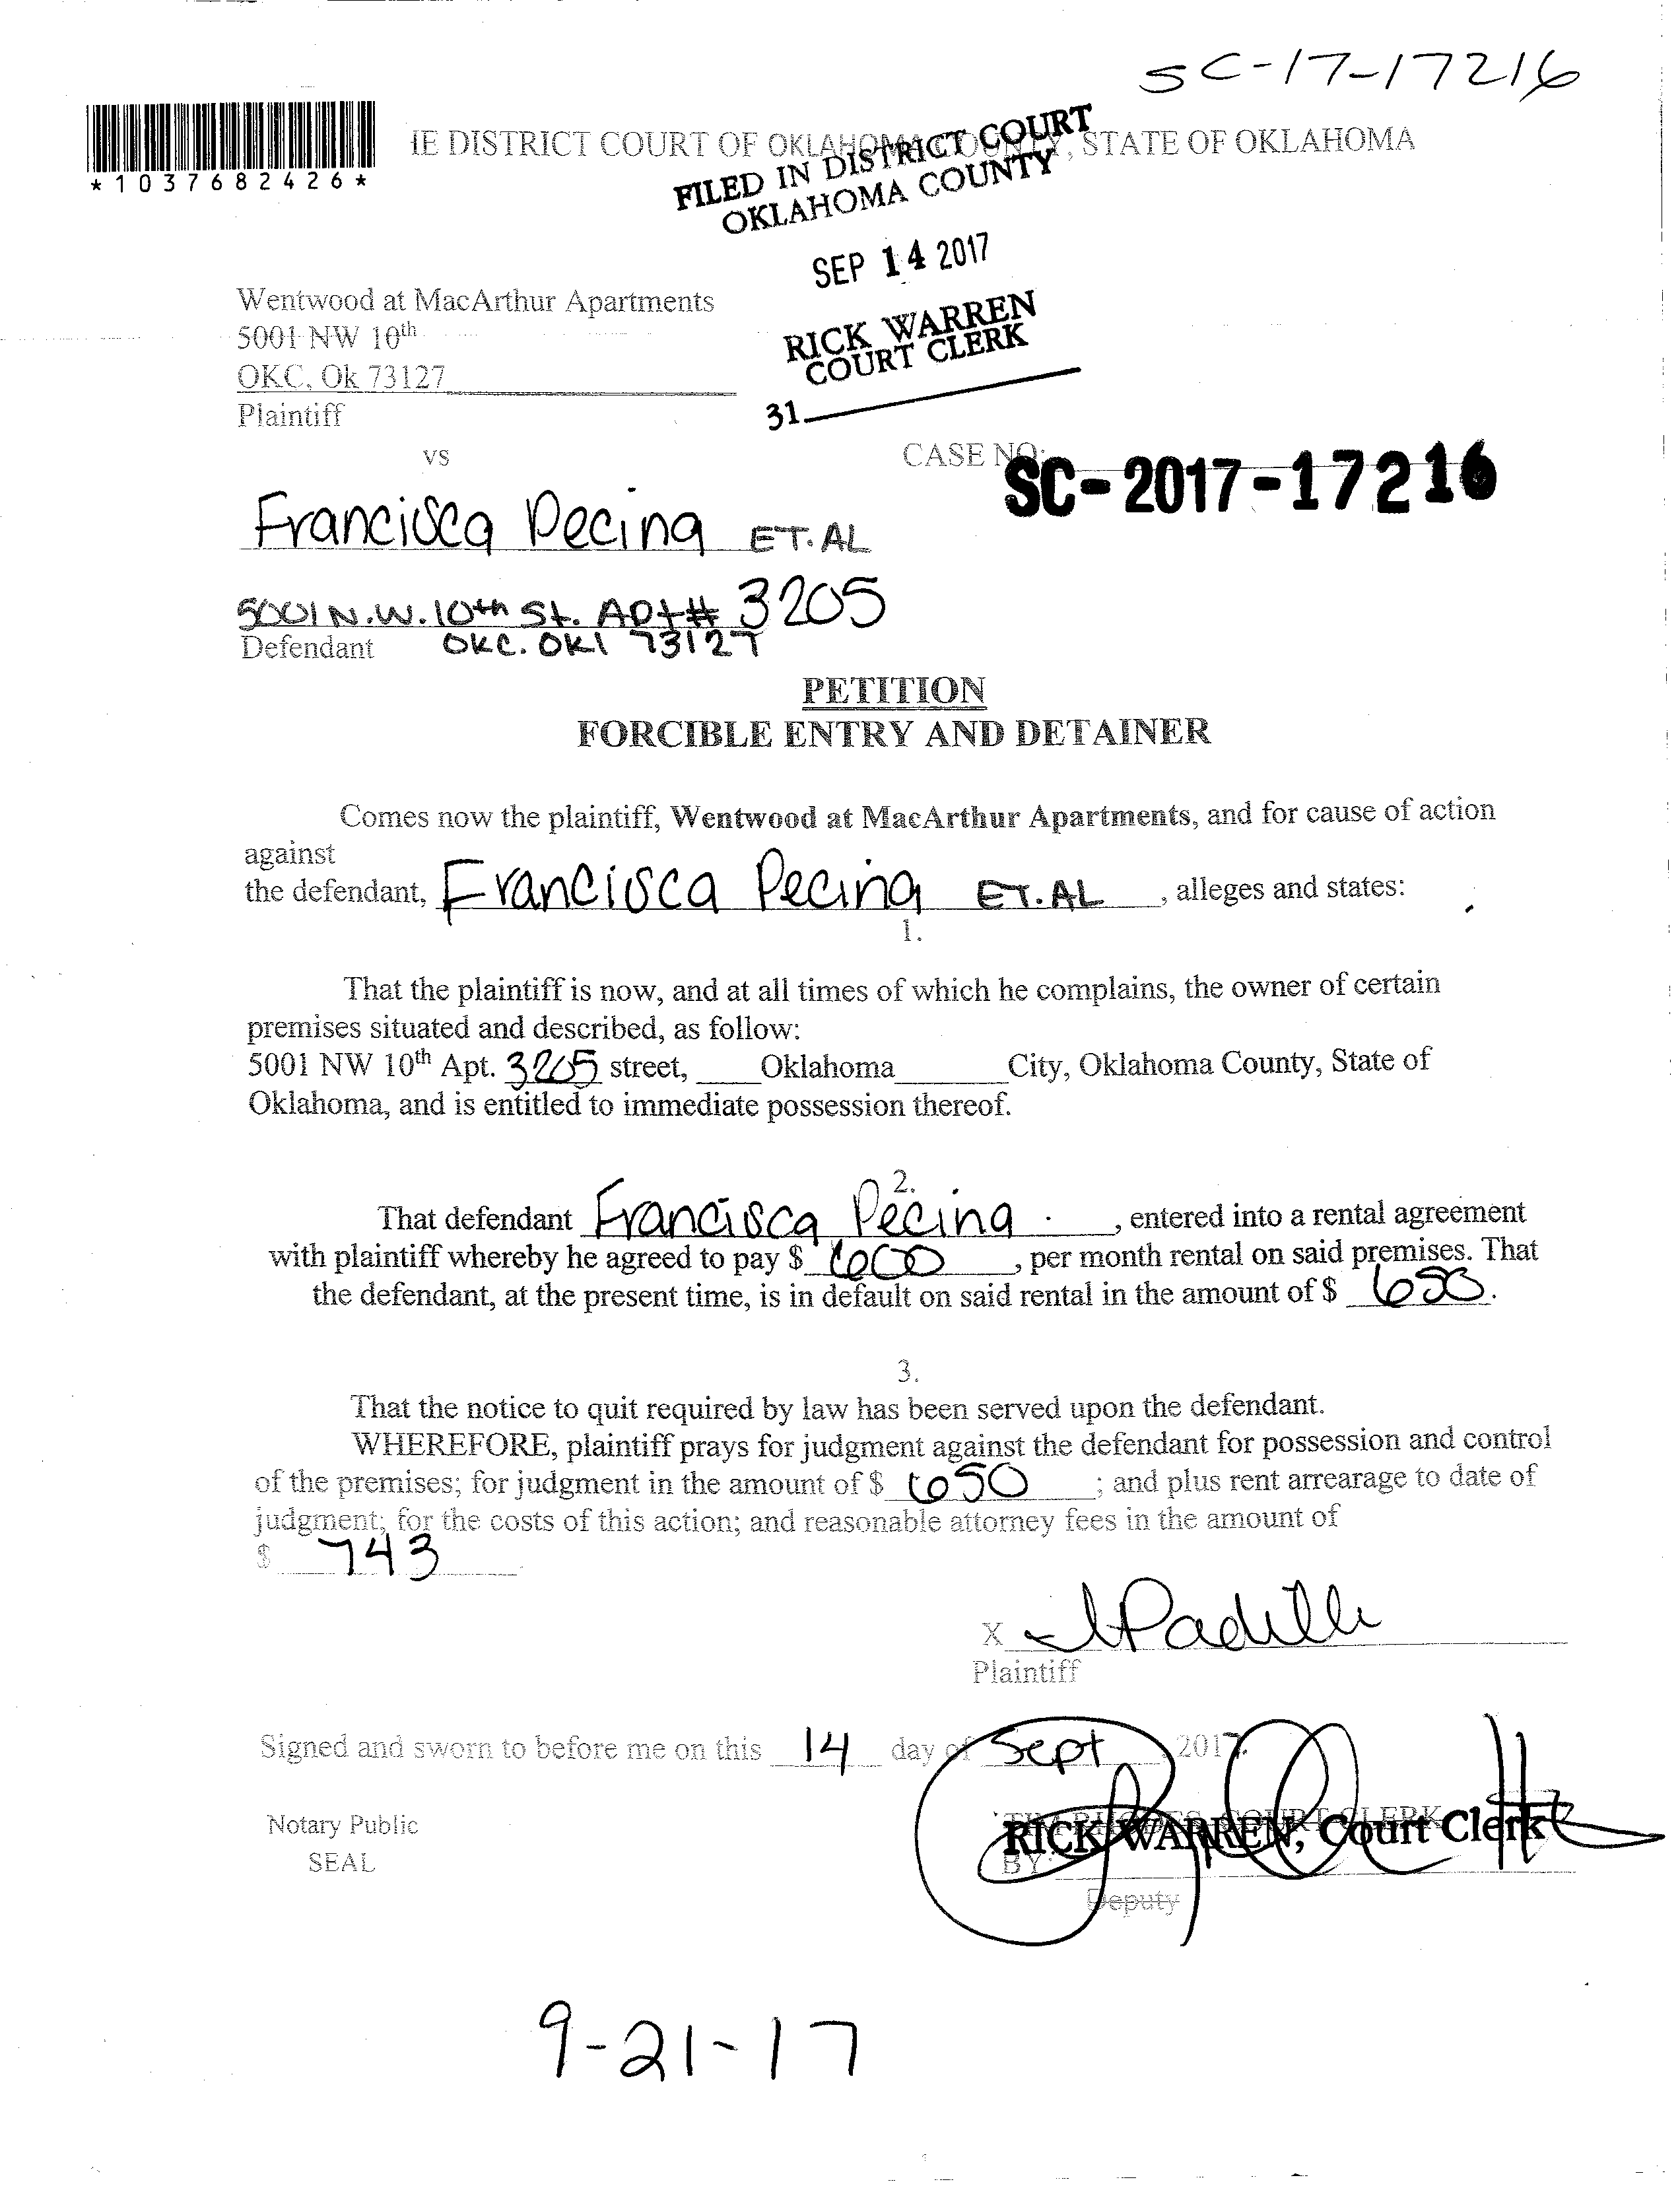 SC-17-17216
*1037682426*
IE DISTRICT COURT OF OKLAHOMA COUNTY, STATE OF OKLAHOMA
FILED IN DISTRICT COURT
OKLAHOMA COUNTY
SEP 14 2017
RICK WARREN
COURT CLERK
31
Wentwood at MacArthur Apartments
5001 NW 10th
OKC, Ok 73127
Plaintiff
vs
CASE NO:
SC-2017-17216
Francisca Pecina ET. AL
5001 N.W. 10th St. Apt# 3205
Defendant OKC. OKl 73127
PETITION
FORCIBLE ENTRY AND DETAINER
Comes now the plaintiff, Wentwood at MacArthur Apartments, and for cause of action
against
the defendant, Francisca Pecina ET. AL , alleges and states:
1.
That the plaintiff is now, and at all times of which he complains, the owner of certain
premises situated and described, as follow:
5001 NW 10th Apt. 3205 street, Oklahoma City, Oklahoma County, State of
Oklahoma, and is entitled to immediate possession thereof.
2.
That defendant Francisca Pecina , entered into a rental agreement
with plaintiff whereby he agreed to pay $ 600 , per month rental on said premises. That
the defendant, at the present time, is in default on said rental in the amount of $ 650.
3.
That the notice to quit required by law has been served upon the defendant.
WHEREFORE, plaintiff prays for judgment against the defendant for possession and control
of the premises; for judgment in the amount of $ 650 ; and plus rent arrearage to date of
judgment; for the costs of this action; and reasonable attorney fees in the amount of
$ 743
X Padilla
Plaintiff
Signed and sworn to before me on this 14 day of Sept , 2017.
Notary Public
SEAL
TIM RHODES, COURT CLERK
RICK WARREN, Court Clerk
BY:
Deputy
9-21-17